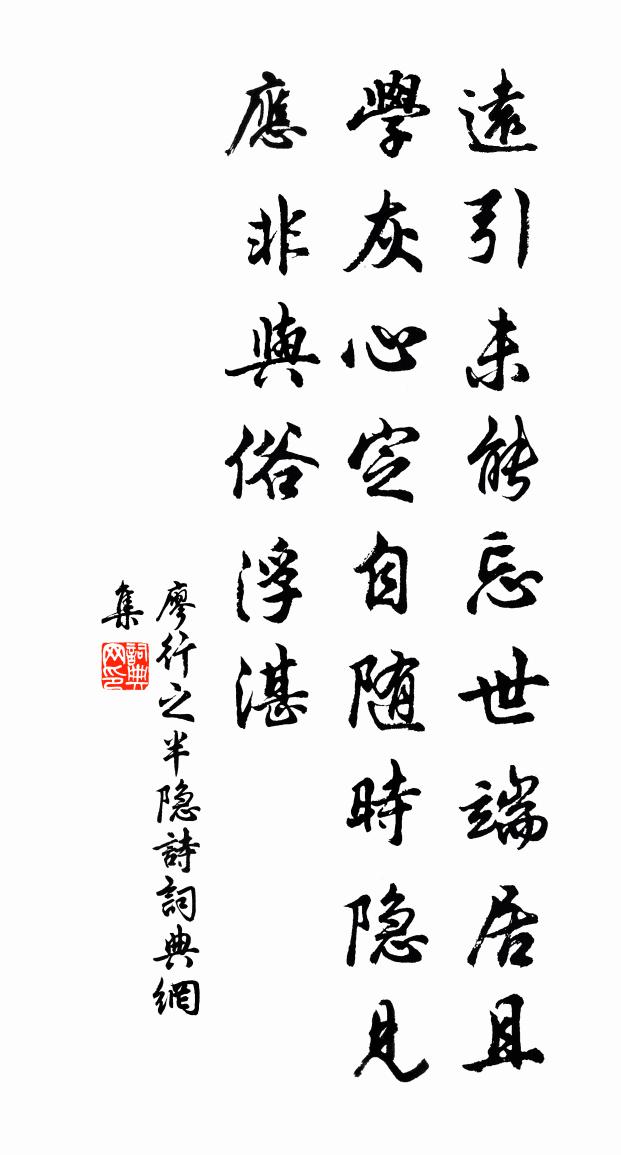 遠引未能忘世端居且
學灰心定自随時隐見
應非與俗浮湛
廖行之半隐詩詞典網
集
詞典
网印